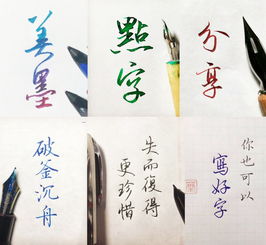 美墨
點字
分享
破釜沉舟
失而復得
更珍惜
你也可以
寫好字